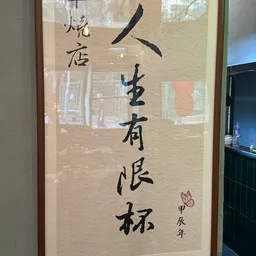 人生有限杯
燒店
甲辰年